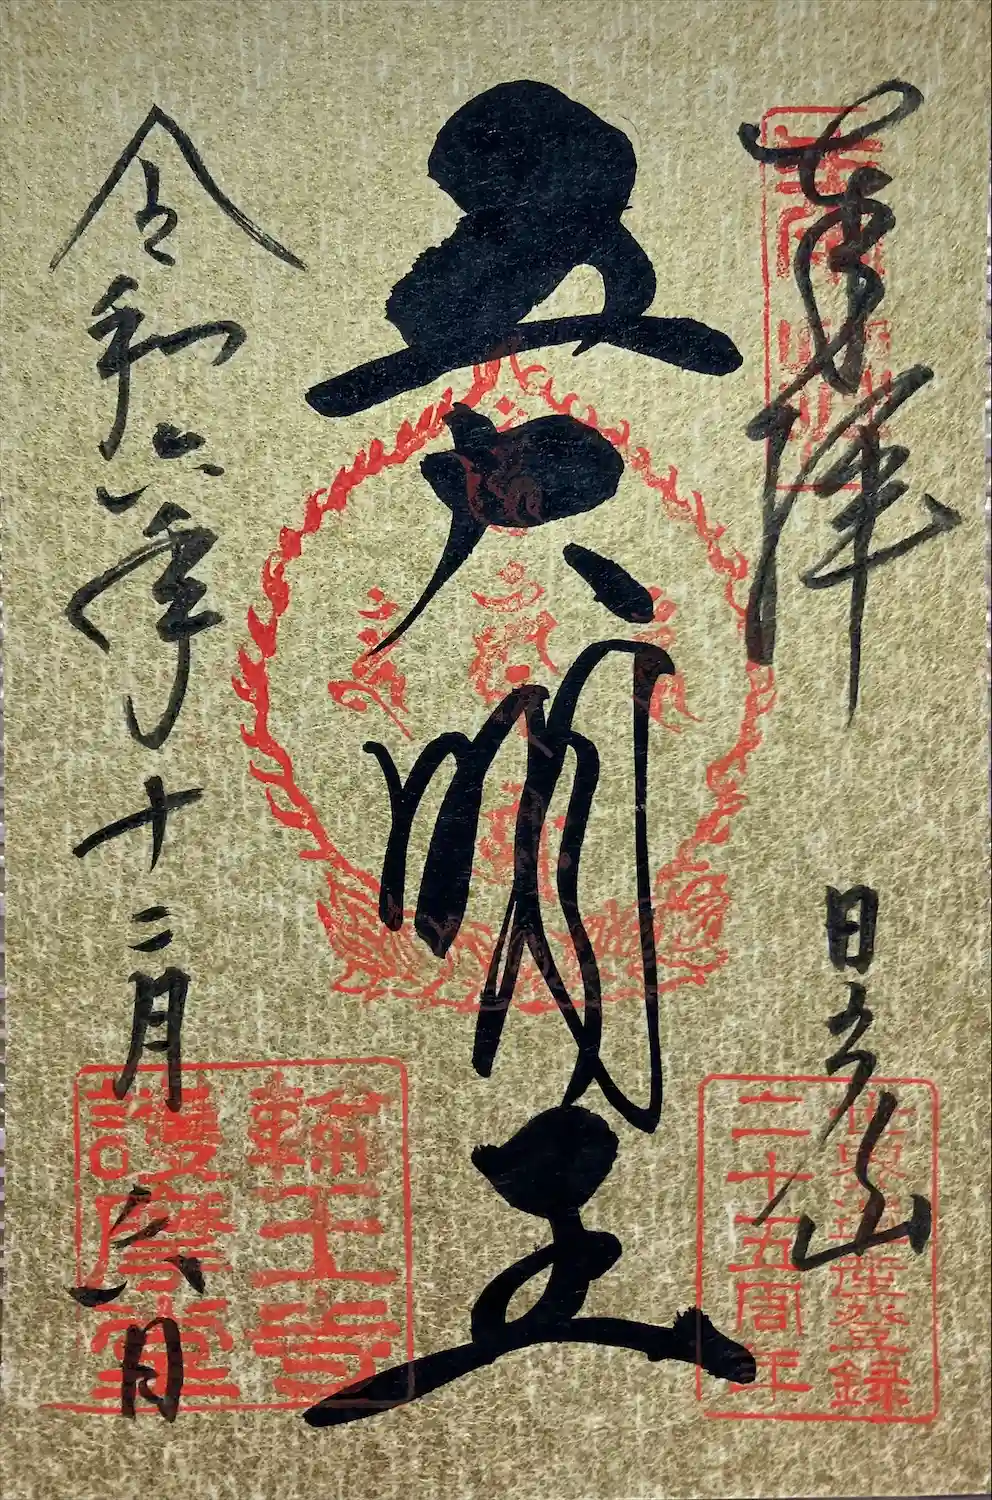 奉拝
日光山
世界遺産登録
二十五周年
五大明王
令和六年十二月六日
輪王寺
護摩堂